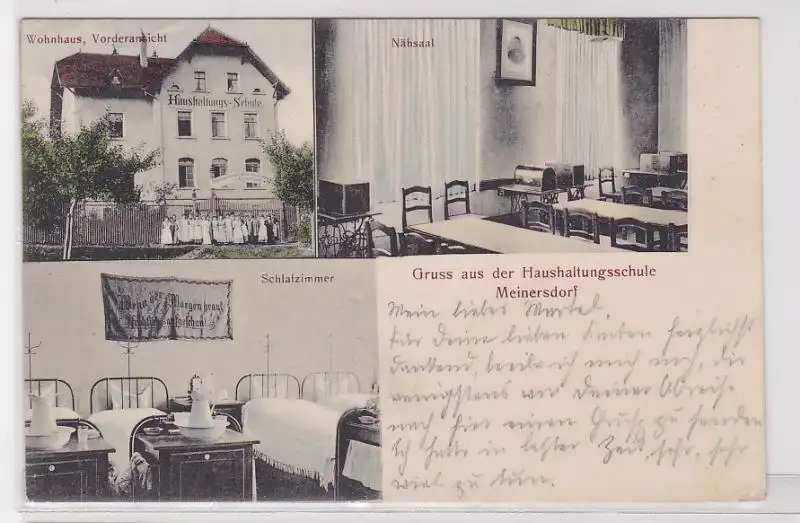 Wohnhaus, Vorderansicht
Haushaltungs-Schule.
Nähsaal
Schlafzimmer
Wenn der Morgen graut
aufgeschaut
Gruss aus der Haushaltungsschule
Meinersdorf
Mein liebes Martel,
für Deine lieben Zeilen herzlichst
dankend, beeile ich mich noch, Dir
wenigstens vor Deiner Abreise
noch hier einen Gruß zu senden
Ich hatte in letzter Zeit sehr, sehr
viel zu tun.